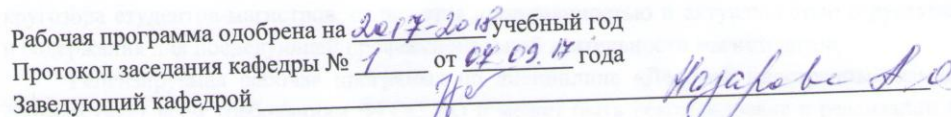 Рабочая программа одобрена на 2017-2018 учебный год
Протокол заседания кафедры № 1 от 07.09.17 года
Заведующий кафедрой Назарова А О